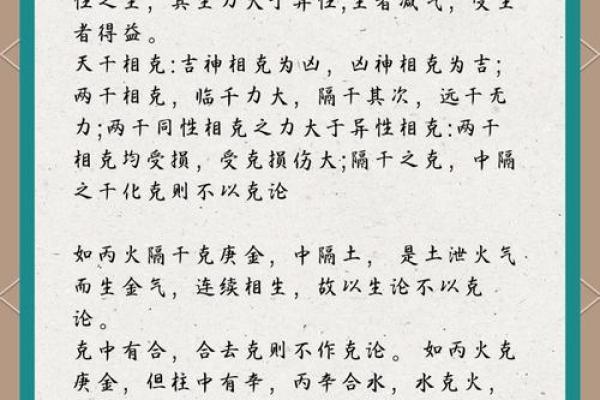 性之生，其生力大于异性;生者减气，受生
者得益。
天干相克:吉神相克为凶，凶神相克为吉;
两干相克，临千力大，隔干其次，远干无
力;两干同性相克之力大于异性相克:两干
相克均受损，受克损伤大;隔干之克，中隔
之干化克则不以克论
如丙火隔干克庚金，中隔土， 是土泄火气
而生金气，连续相生，故以生论不以克
论。
克中有合，合去克则不作克论。 如丙火克
庚金，但柱中有辛，丙辛合水，水克火，